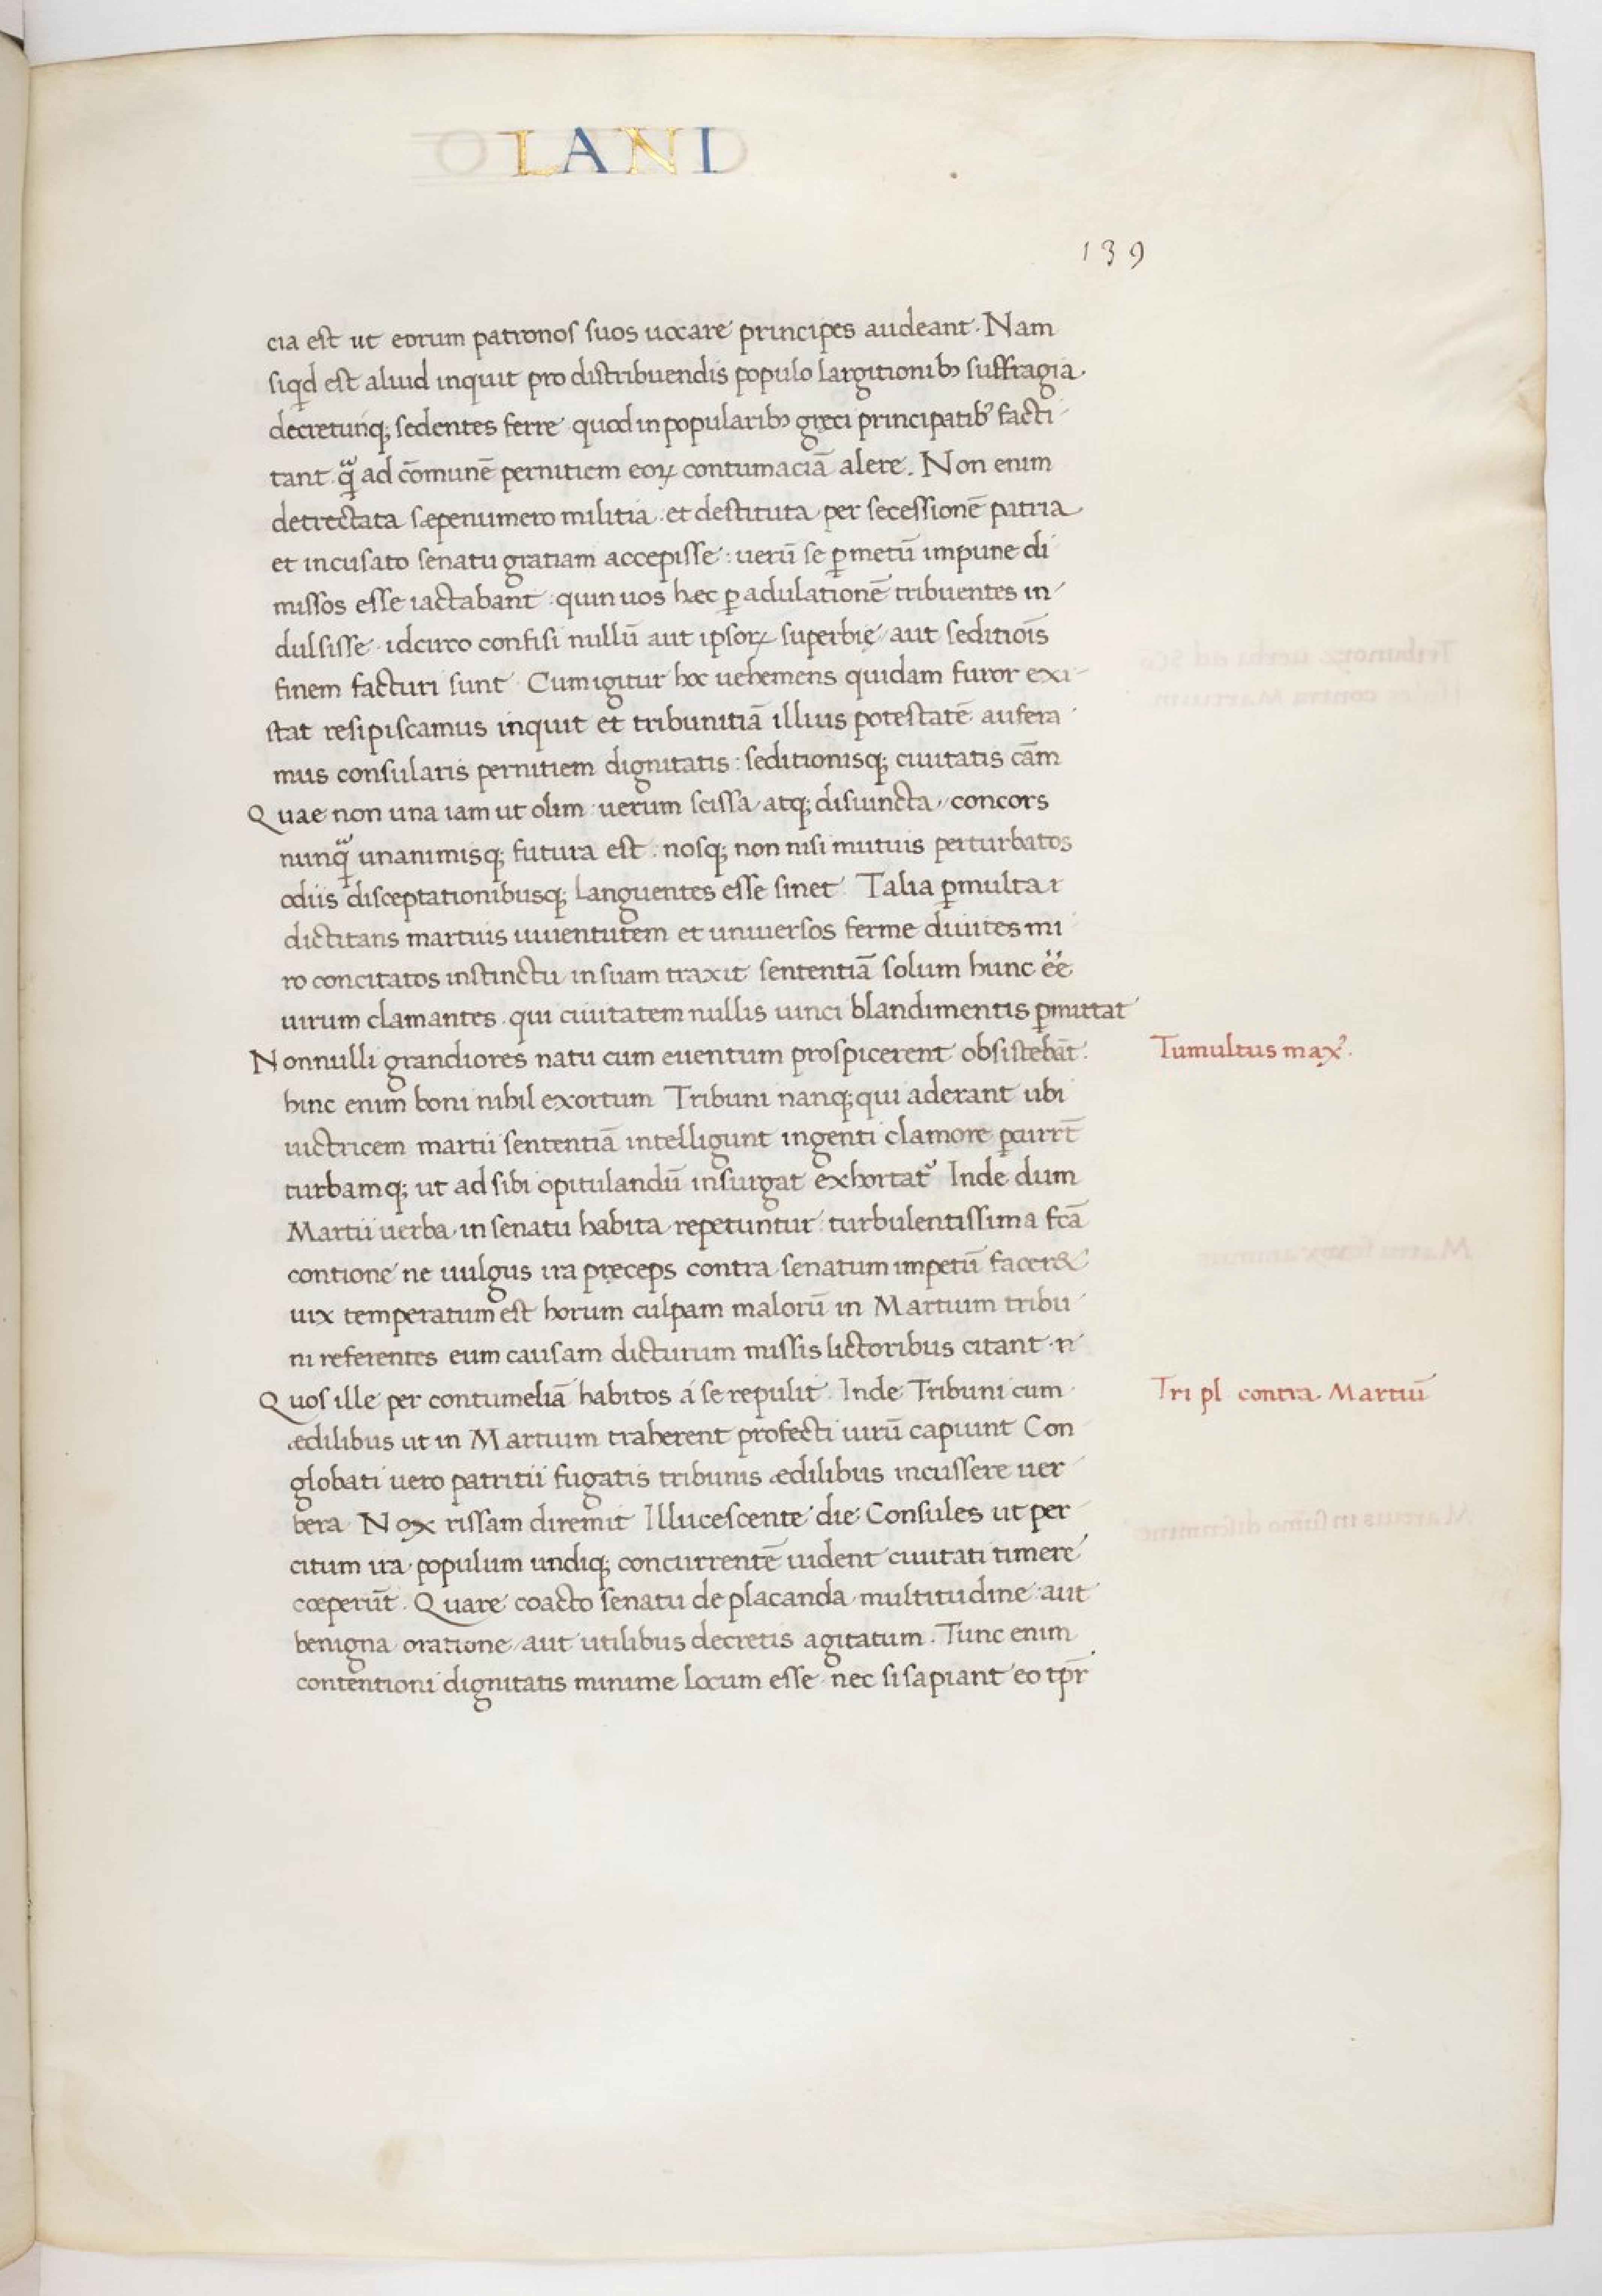 LANI
139
cia est ut eorum patronos suos uocare principes audeant. Nam
siqd est aliud inquit pro distribuendis populo largitionibꝫ suffragia
decretunq; sedentes ferre quod in popularibꝫ gręci principatibꝰ facti
tant. ꝗᷓ ad cōmunē pernitiem eoꝝ contumaciā alere. Non enim
detrectata sæpenumero militia: et destituta per secessionē patria
et incusato senatu gratiam accepisse: uerū se ꝑ metū impune di
missos esse iactabant: quin uos hæc ꝑ adulationē tribuentes in
dulsisse. idcirco confisi nullū aut ipsoꝝ superbię, aut seditiōis
finem facturi sunt. Cum igitur hoc uehemens quidam furor exi
stat resipiscamus inquit et tribunitiā illius potestatē aufera
mus consularis pernitiem dignitatis: seditionisq; ciuitatis cām
Quae non una iam ut olim: uerum scissa atq; disiuncta, concors
nunꝗᷓ unanimisq; futura est: nosq; non nisi mutuis perturbatos
odiis disceptationibusq; languentes esse sinet. Talia ꝑmulta
dictitans martius iuuentutem et uniuersos ferme diuites mi
ro concitatos instinctu in suam traxit sententiā solum hunc ēē
uirum clamantes. qui ciuitatem nullis uinci blandimentis ꝑmittat
Nonnulli grandiores natu cum euentum prospicerent obsistebāt.
hinc enim boni nihil exortum Tribuni nanq; qui aderant ubi
uictricem martii sententiā intelligunt ingenti clamore ꝑcurrt̄
turbamq; ut ad sibi opitulandū insurgat exhortatᷣ Inde dum
Martii uerba in senatu habita repetuntur: turbulentissima fcā
contione ne uulgus ira pręceps contra senatum impetū facer&
uix temperatum est horum culpam malorū in Martium tribu
ni referentes eum causam dicturum missis lictoribus citant.
Quos ille per contumeliā habitos á se repulit. Inde Tribuni cum
ædilibus ut in Martium traherent profecti uirū capiunt Con
globati uero patritii fugatis tribunis ædilibus incussere uer
bera. Nox rissam diremit Illucescente die Consules ut per
citum ira populum undiq; concurrentē uident ciuitati timere
cœperūt. Quare coacto senatu de placanda multitudine: aut
benigna oratione, aut utilibus decretis agitatum. Tunc enim
contentioni dignitatis minime locum esse. nec si sapiant eo tp̄r
Tumultus maxꝰ.
Tri pl contra Martiū